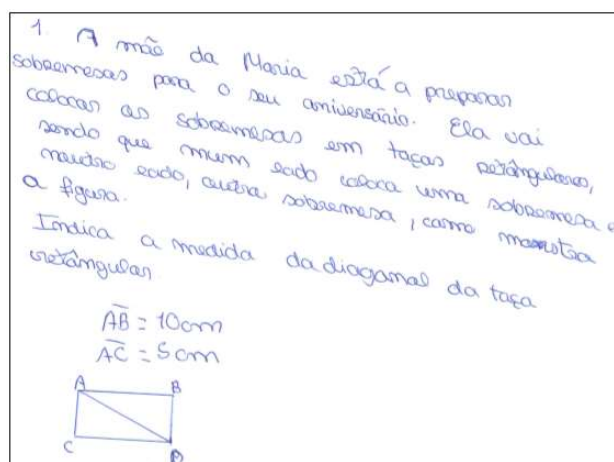 1. A mãe da Maria está a preparar
sobremesas para o seu aniversário. Ela vai
colocar as sobremesas em taças retângulares,
sendo que num lado coloca uma sobremesa e
noutro lado, outra sobremesa, como mostra
a figura.
Indica a medida da diagonal da taça
retângular
AB = 10cm
AC = 5cm
A B
C D